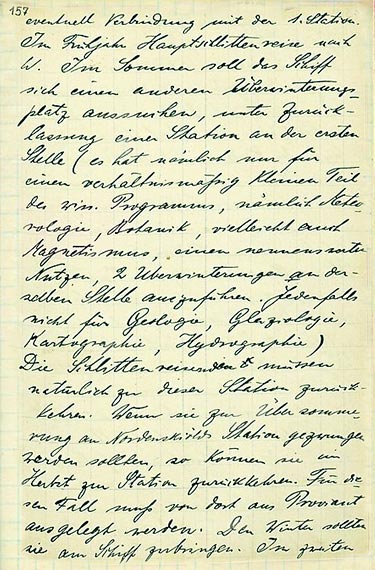 157
eventuell Verbindung mit der 1. Station.
Im Frühjahr Hauptschlittenreise nach
W. Im Sommer soll das Schiff
sich einen anderen Überwinterungs-
platz aussuchen, unter Zurück-
lassung einer Station an der ersten
Stelle (es hat nämlich nur für
einen verhältnismäßig kleinen Teil
des wiss. Programms, nämlich Meteo-
rologie, Botanik, vielleicht auch
Magnetismus, einen nennenswerten
Nutzen, 2 Überwinterungen an der-
selben Stelle auszuführen. Jedenfalls
nicht für Geologie, Glaziologie,
Kartographie, Hydrographie)
Die Schlittenreisenden müssen
natürlich zu dieser Station zurück-
kehren. Wenn sie zur Übersomme-
rung an Nordenskiölds Station gezwungen
werden sollten, so können sie im
Herbst zur Station zurückkehren. Für die-
sen Fall muß von dort aus Proviant
ausgelegt werden. Den Winter sollten
sie am Schiff zubringen. Im zweiten